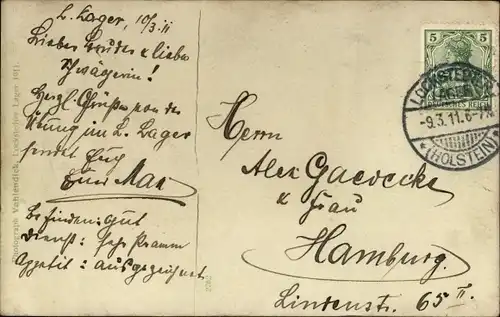 L. Lager, 10/3.11
Lieber Bruder & liebe
Schwägerin!
Herzl. Grüße von der
Übung im L. Lager
sendet Euch
Euer Max
Befinden: Gut
Dienst: sehr stramm
Appetit: ausgezeichnet.
Photograph Vahlendick, Lockstedter Lager 1911.
5 5
DEUTSCHES REICH
LOCKSTEDTER
LAGER
-9.3.11.6-7N.
*(HOLSTEIN)
Herrn
Alex
& Frau
Hamburg.
Lindenstr. 65 II.